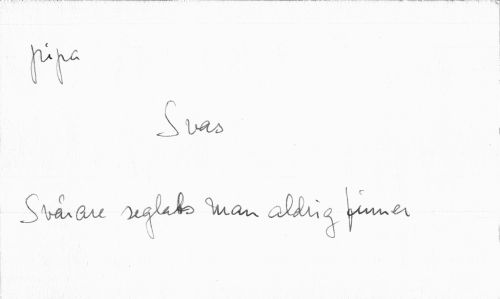 pipa
Svas
Svårare seglats man aldrig finner